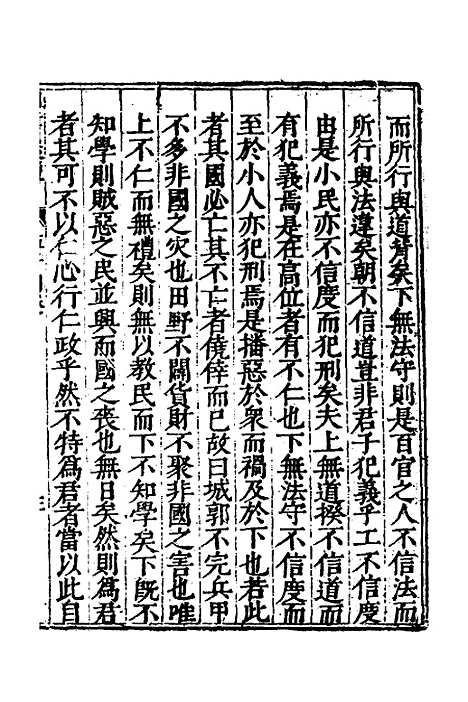 而所行與道背矣下無法守則是百官之人不信法而
所行與法違矣朝不信道豈非君子犯義乎工不信度
由是小民亦不信度而犯刑矣夫上無道揆不信道而
有犯義焉是在高位者有不仁也下無法守不信度而
至於小人亦犯刑焉是播惡於衆而禍及於下也若此
者其國必亡其不亡者僥倖而已故曰城郭不完兵甲
不多非國之灾也田野不闢貨財不聚非國之害也唯
上不仁而無禮矣則無以教民而下不知學矣下旣不
知學則賊惡之民並興而國之喪也無日矣然則爲君
者其可不以仁心行仁政乎然不特爲君者當以此自